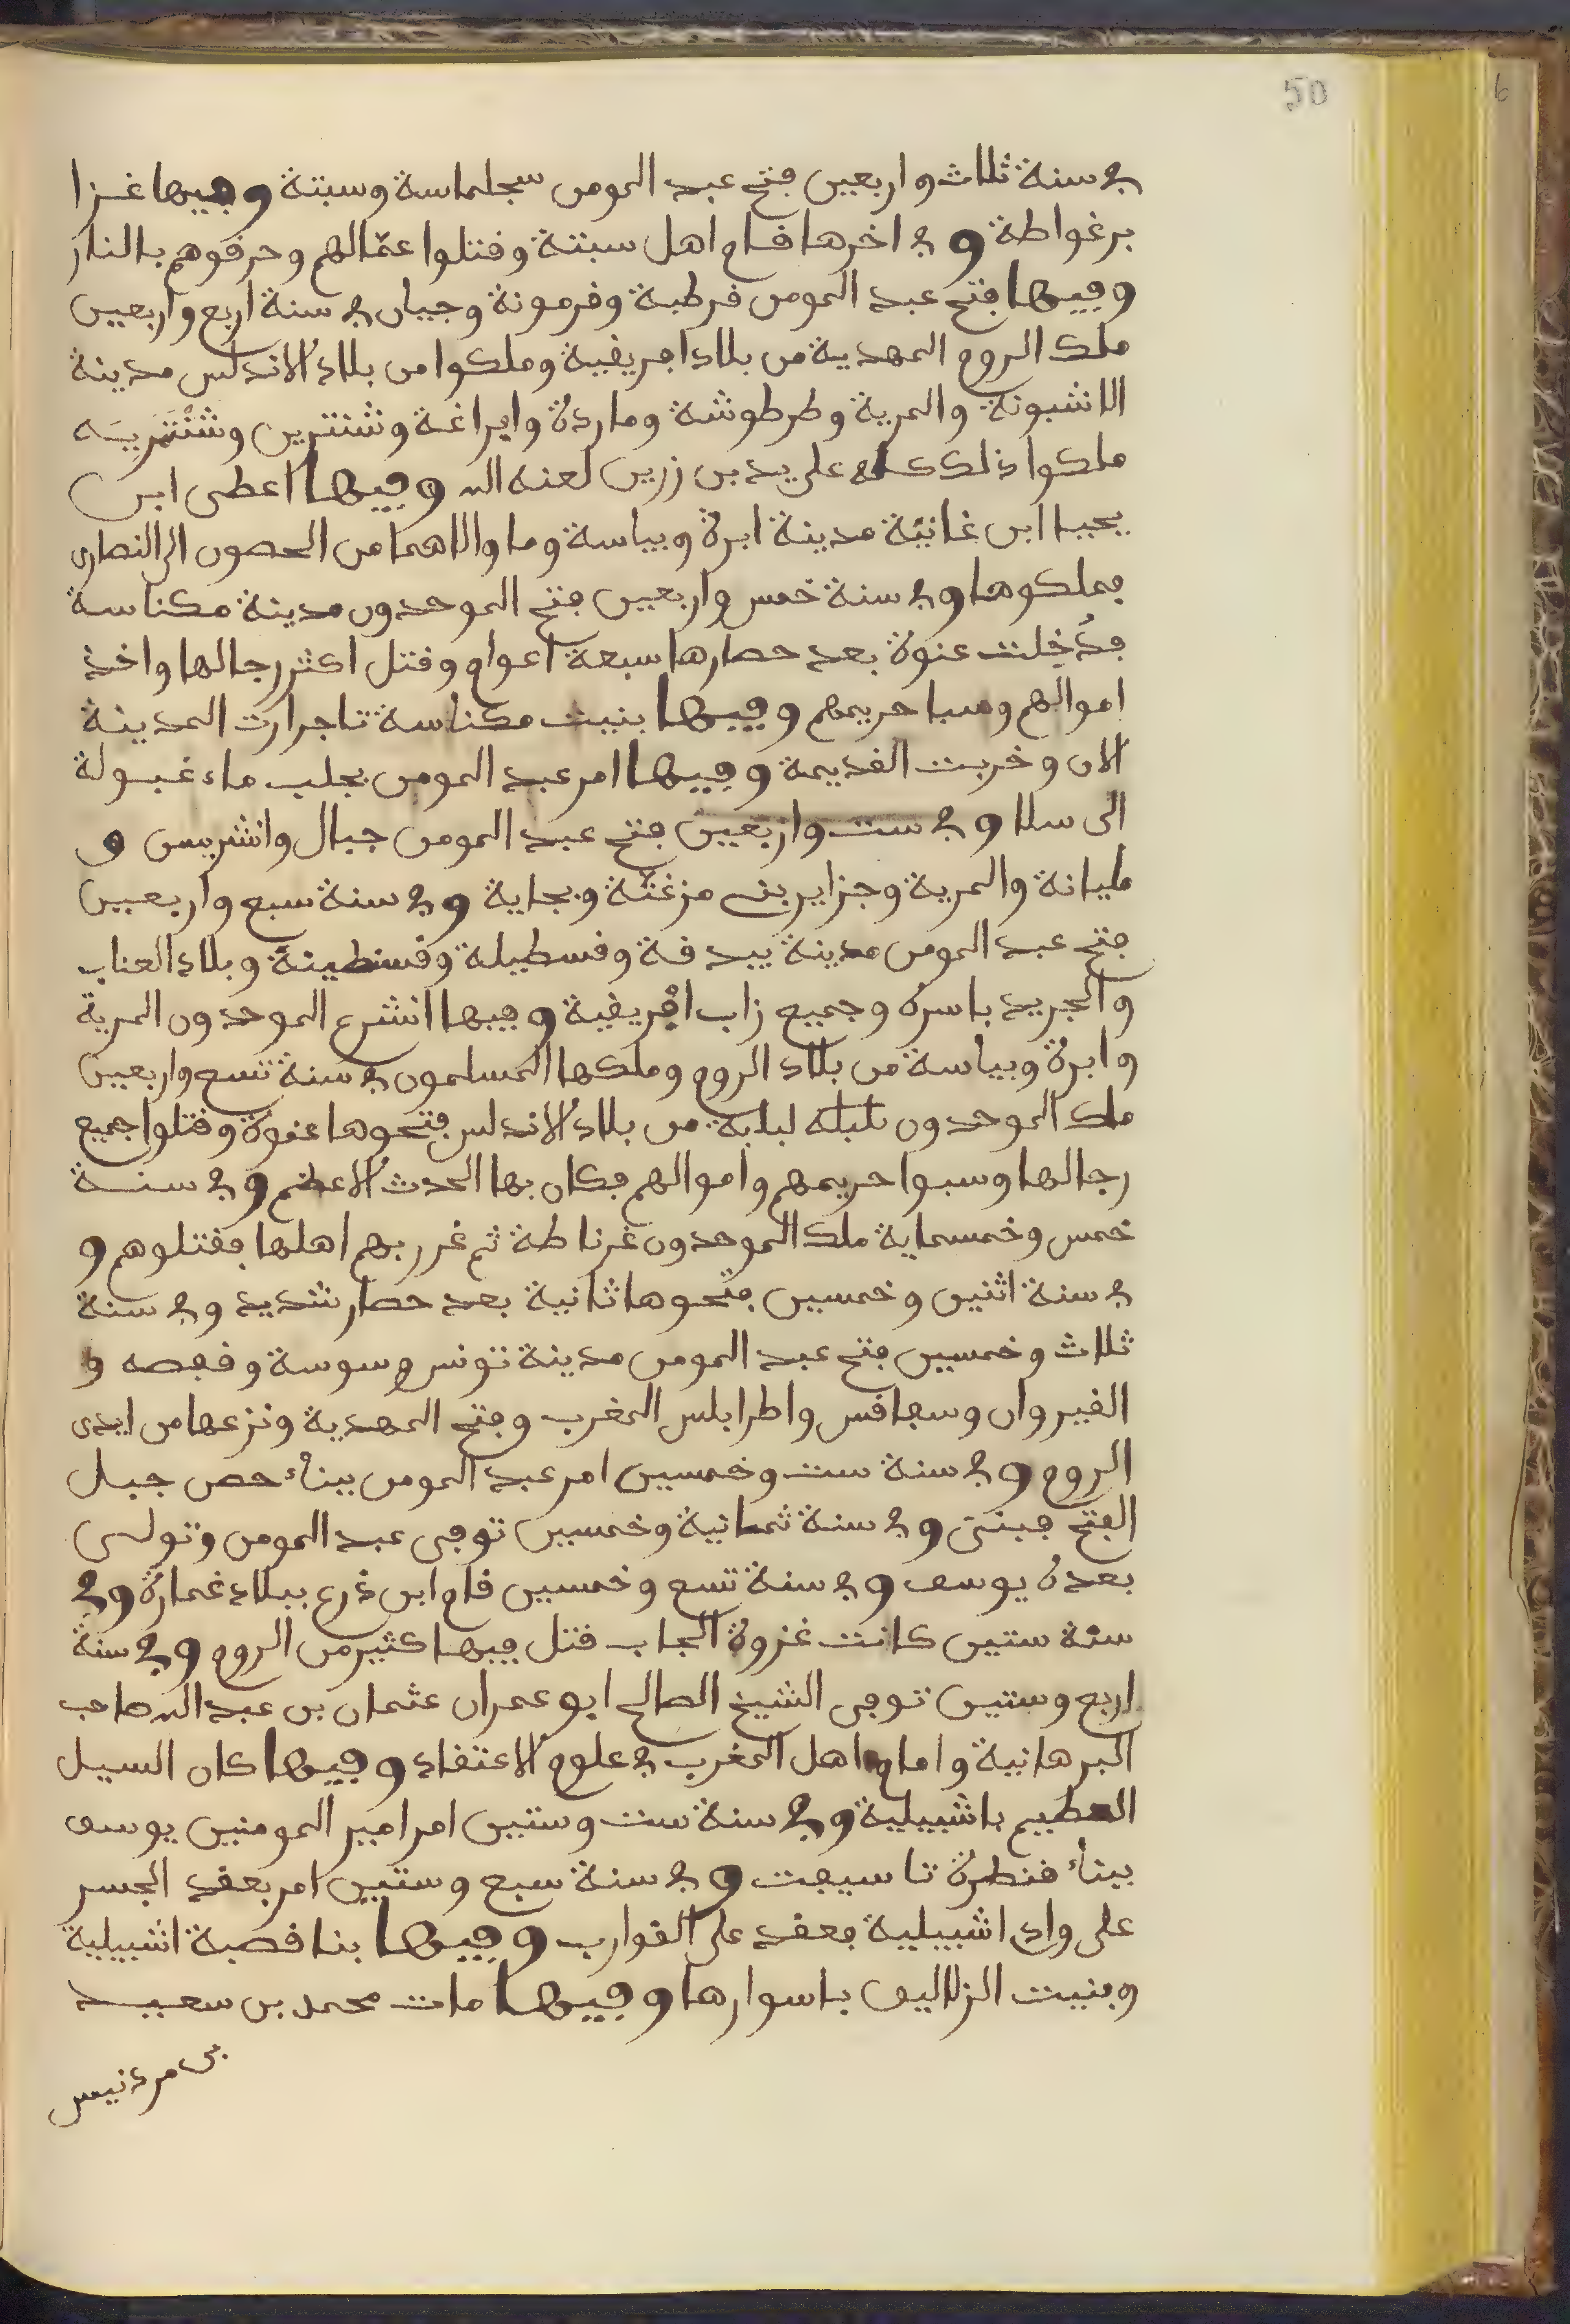 50
في سنة ثلاث واربعين فتح عبد المومن سجلماسة وسبتة وفيها غزا
برغواطة وفي اخرها قام اهل سبتة وقتلوا عمّالهم وحرقوهم بالنار
وفيها فتح عبد المومن قرطبة وقرمونة وجيان في سنة اربع واربعين
ملك الروم المهدية من بلاد افريقية وملكوا من بلاد الاندلس مدينة
الاشبونة والمرية وطرطوشة وماردة وافراغة وشنترين وشنتمريه
ملكوا ذلك كله على يد بن زرين لعنه الله وفيها اعطى ابن
يحيا ابن غانيّة مدينة ابرة وبياسة وما والاهما من الحصون الى النصارى
فملكوها وفي سنة خمس واربعين فتح الموحدون مدينة مكناسة
فدُخِلت عنوة بعد حصارها سبعة اعوام وقتل اكثر رجالها واخذ
اموالهم وسبا حريمهم وفيها بنيت مكناسة تاجرارت المدينة
الان وخربت القديمة وفيها امر عبد المومن بجلب ماء غبولة
الى سلا وفي ست واربعين فتح عبد المومن جبال وانشريس و
مليانة والمرية وجزاير بني مزغنّة وبجاية وفي سنة سبع واربعين
فتح عبد المومن مدينة يبدقة وقسطيلة وقسنطينة وبلاد العناب
والجريد باسره وجميع زاب افريقية وفيها انشرع الموحدون المرية
وابرة وبياسة من بلاد الروم وملكها المسلمون في سنة تسع واربعين
ملك الموحدون تلبلة لبلبة من بلاد الاندلس فتحوها عنوة وقتلوا جميع
رجالها وسبوا حريمهم واموالهم فكان بها الحدث الاعظم وفي سنة
خمس وخمسماية ملك الموحدون غرناطة ثم غرر بهم اهلها فقتلوهم و
في سنة اثنين وخمسين فتحوها ثانية بعد حصار شديد وفي سنة
ثلاث وخمسين فتح عبد المومن مدينة تونس وسوسة وقفصه و
القيروان وسفاقس واطرابلس المغرب وفتح المهدية ونزعها من ايدى
الروم وفي سنة ست وخمسين امر عبد المومن ببناء حصن جبل
الفتح فبنى وفي سنة ثمانية وخمسين توفى عبد المومن وتولى
بعده يوسف وفي سنة تسع وخمسين قام ابن ذرع ببلاد غمارة وفي
سنة ستين كانت غزوة الجاب قتل فيها كثير من الروم وفي سنة
اربع وستين توفى الشيخ الصالح ابو عمران عثمان بن عبد الله صاحب
البرهانية وامام اهل المغرب في علوم الاعتقاد وفيها كان السيل
العظيم باشبيلية وفي سنة ست وستين امر امير المومنين يوسف
ببناء قنطرة تاسيفت وفي سنة سبع وستين امر بعقد الجسر
على واد اشبيلية فعقد على القوارب وفيها بنا قصبة اشبيلية
وبنيت الزلاليق باسوارها وفيها مات محمد بن سعيد
بن مردنيس